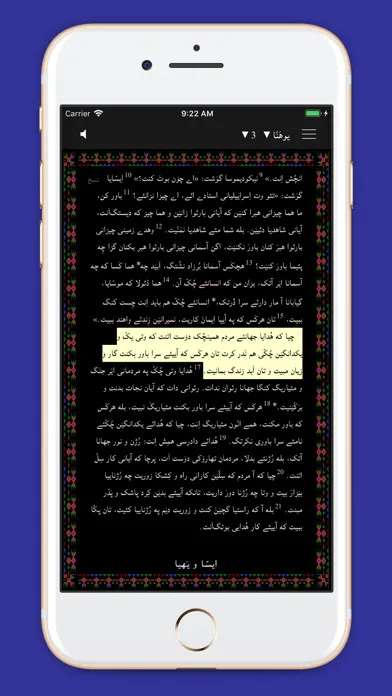 Carrier 9:22 AM
یوهَنّا ▼ 3 ▼
انچُش اِنت.» 9 نیکودیموسا گوَشت: «اے چوَن بوتَ کنت؟» 10 ایسّایا
گوَشت: «تئو وت اِسراییلیانی استادے ائے، اے چیزا نزانئے؟ 11 باور کن،
ما هما چیزانی هبرا کنێن که آیانی بارئوا زانێن و هما چیز که دیستگ‌اَنت،
آیانی شاهدیا دئیێن. بله شما مئے شاهدیا نمَنّێت. 12 وهدے زمینی چیزانی
بارئوا هبرَ کنان باورَ نکنێت، اگن آسمانی چیزانی بارئوا هبر بکنان گڑا چه
پئیما باورَ کنێت؟ 13 هچکَس آسمانا بُرزاد نشُتگ، اَبێد چه* هما کَسا که چه
آسمانا اێر آتک، بزان من که انسانئے چُکّ آن. 14 هما ڈئولا که موسّایا،
گیابانا آ مار دارئے سرا دْرتک،* انسانئے چُکّ هم باید اِنت چِست کنگ
ببیت، 15 تان هرکَس که په آییا ایمان کاریت، نمیرانێن زندئے واهند ببیت.»
چیا که هُدایا جهانئے مردم همینچُک دۆست اتنت که وتی یکّ و
یکدانگێن چُکّی هم نَدر کرت تان هرکَس که آییئے سرا باور بکنت گار و
زیان مبیت و تان اَبد زندگ بمانیت. 17 هُدایا وتی چُکّ په مردمانی اێر جنگ
و مئیاریگ کنگا جهانا رئوان ندات. رئوانی دات که آیان نجات بدنت و
برَکّێنیت.* 18 هرکَس که آییئے سرا باور بکنت مئیاریگَ نبیت، بله هرکَس
که باور مکنت، همے اَنّون مئیاریگ اِنت، چیا که هُدائے یکدانگێن چُکّئے
نامئے سرا باوری نکرتگ. 19 هُدائے دادرسی همِش اِنت: رُژن و نور جهانا
آتک، بله رُژنئے بدلا، مردمان تهاروٚکی دۆست اَت، پرچا که آیانی کار سِلّ
اتنت. 20 چیا که آ مردم که سِلّێن کارانی راه و کِشکا زوریت چه رُژناییا
بێزارَ بیت و وتا چه رُژنا دورَ داریت، تانکه آییئے بدێن کِرد پاشک و پدّر
مبنت. 21 بله آ که راستیا گچێنَ کنت و زوریت دێم په رُژناییا کئیت، تان پکّا
ببیت که آییئے کار هُدایی بوتگ‌اَنت.
ایسّا و یَهیا